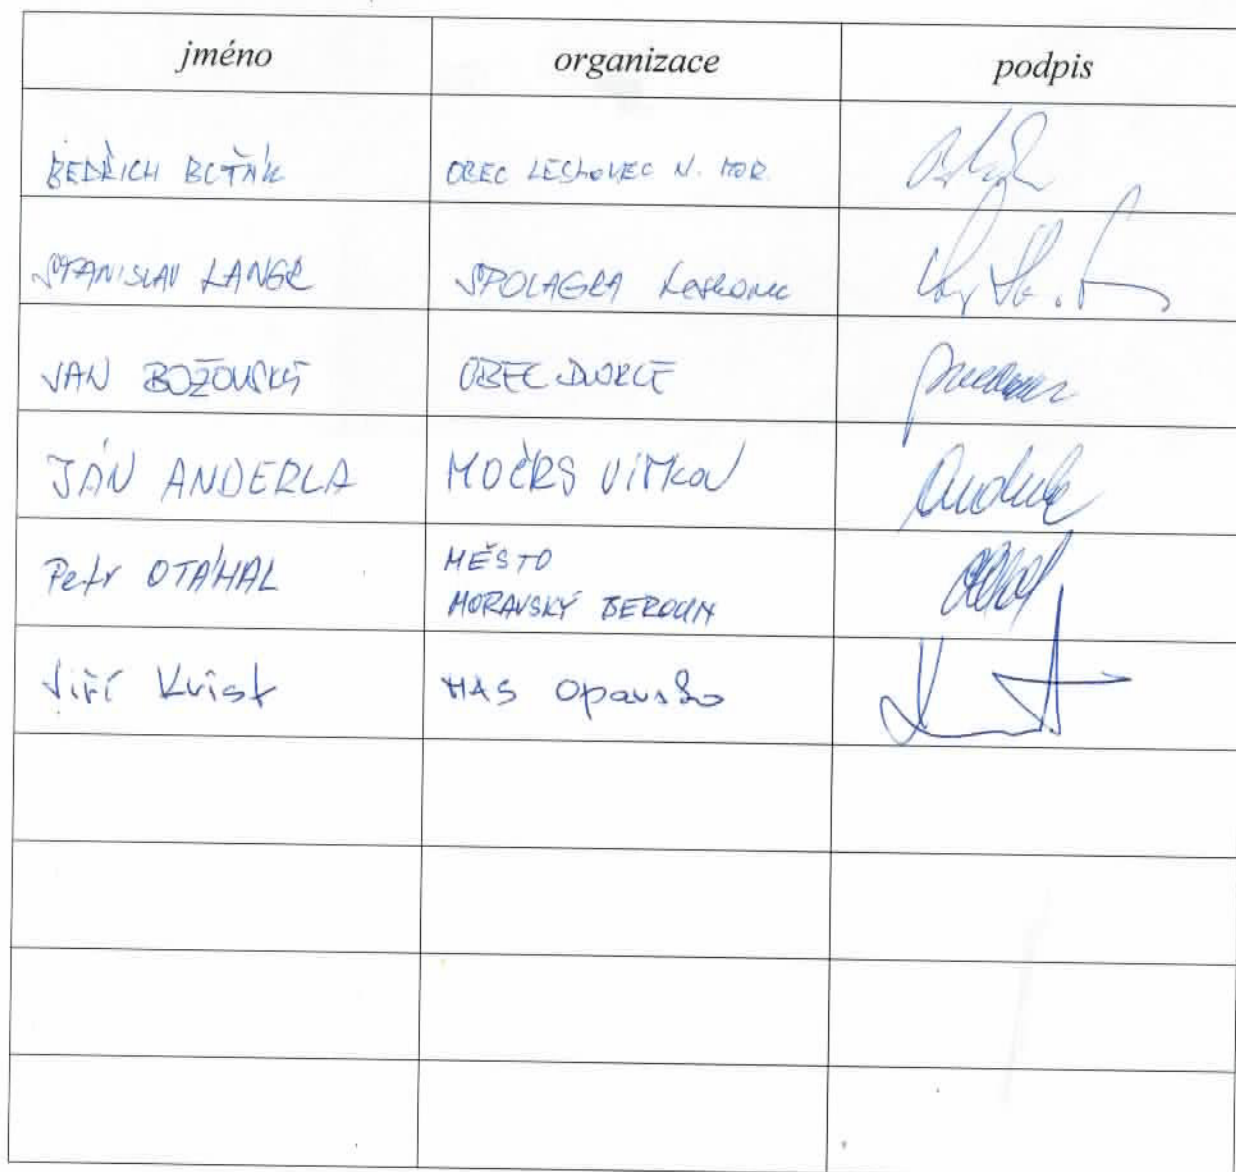 jméno organizace podpis
BEDŘICH BOTÁK OBEC LESKOVEC N. MOR.
STANISLAV LANGR SPOLAGRA Leskovec
JAN BOŽOVSKÝ OBEC DVORCE
JÁN ANDERLA MOČRS VÍTKOV
Petr OTÁHAL MĚSTO
MORAVSKÝ BEROUN
Jiří Krist MAS Opavsko